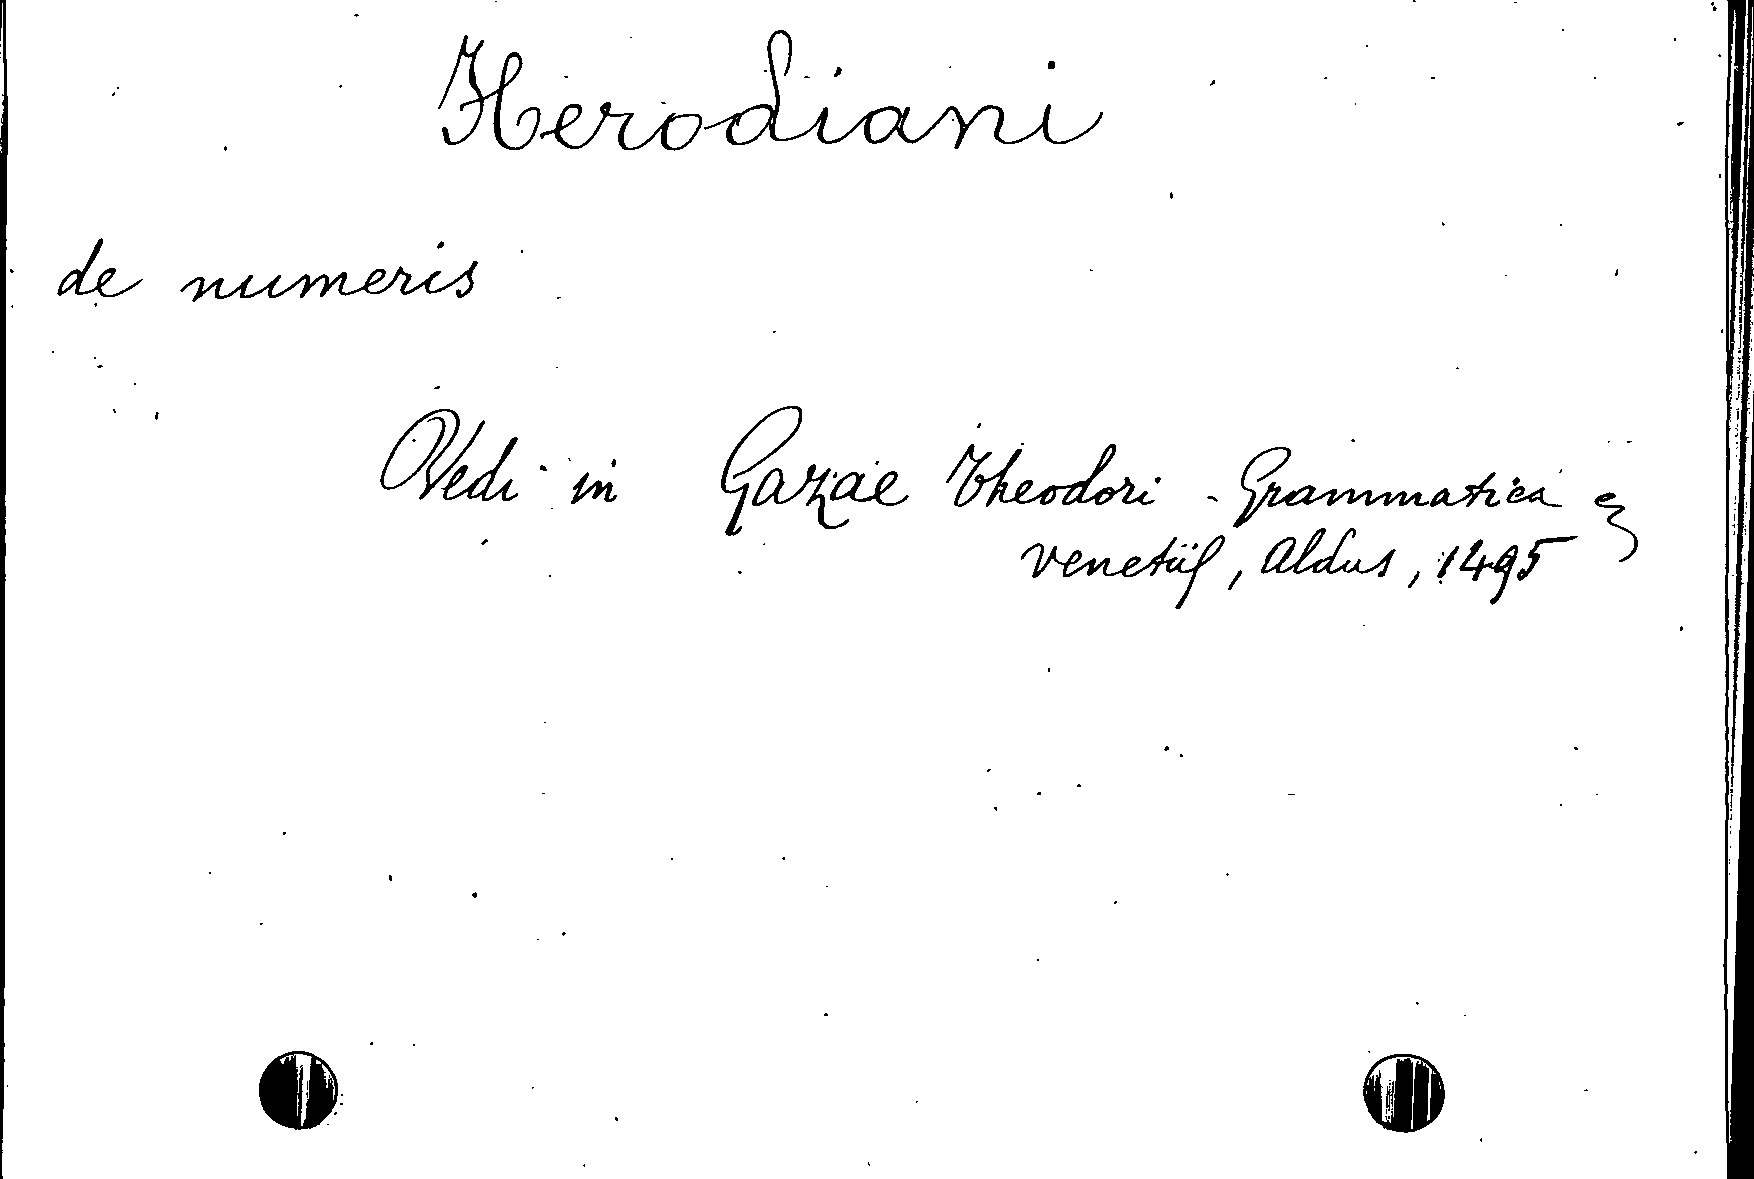 Herodiani
de numeris
Vedi in Gazae Theodori - Grammatica
venetiis, Aldus, 1495